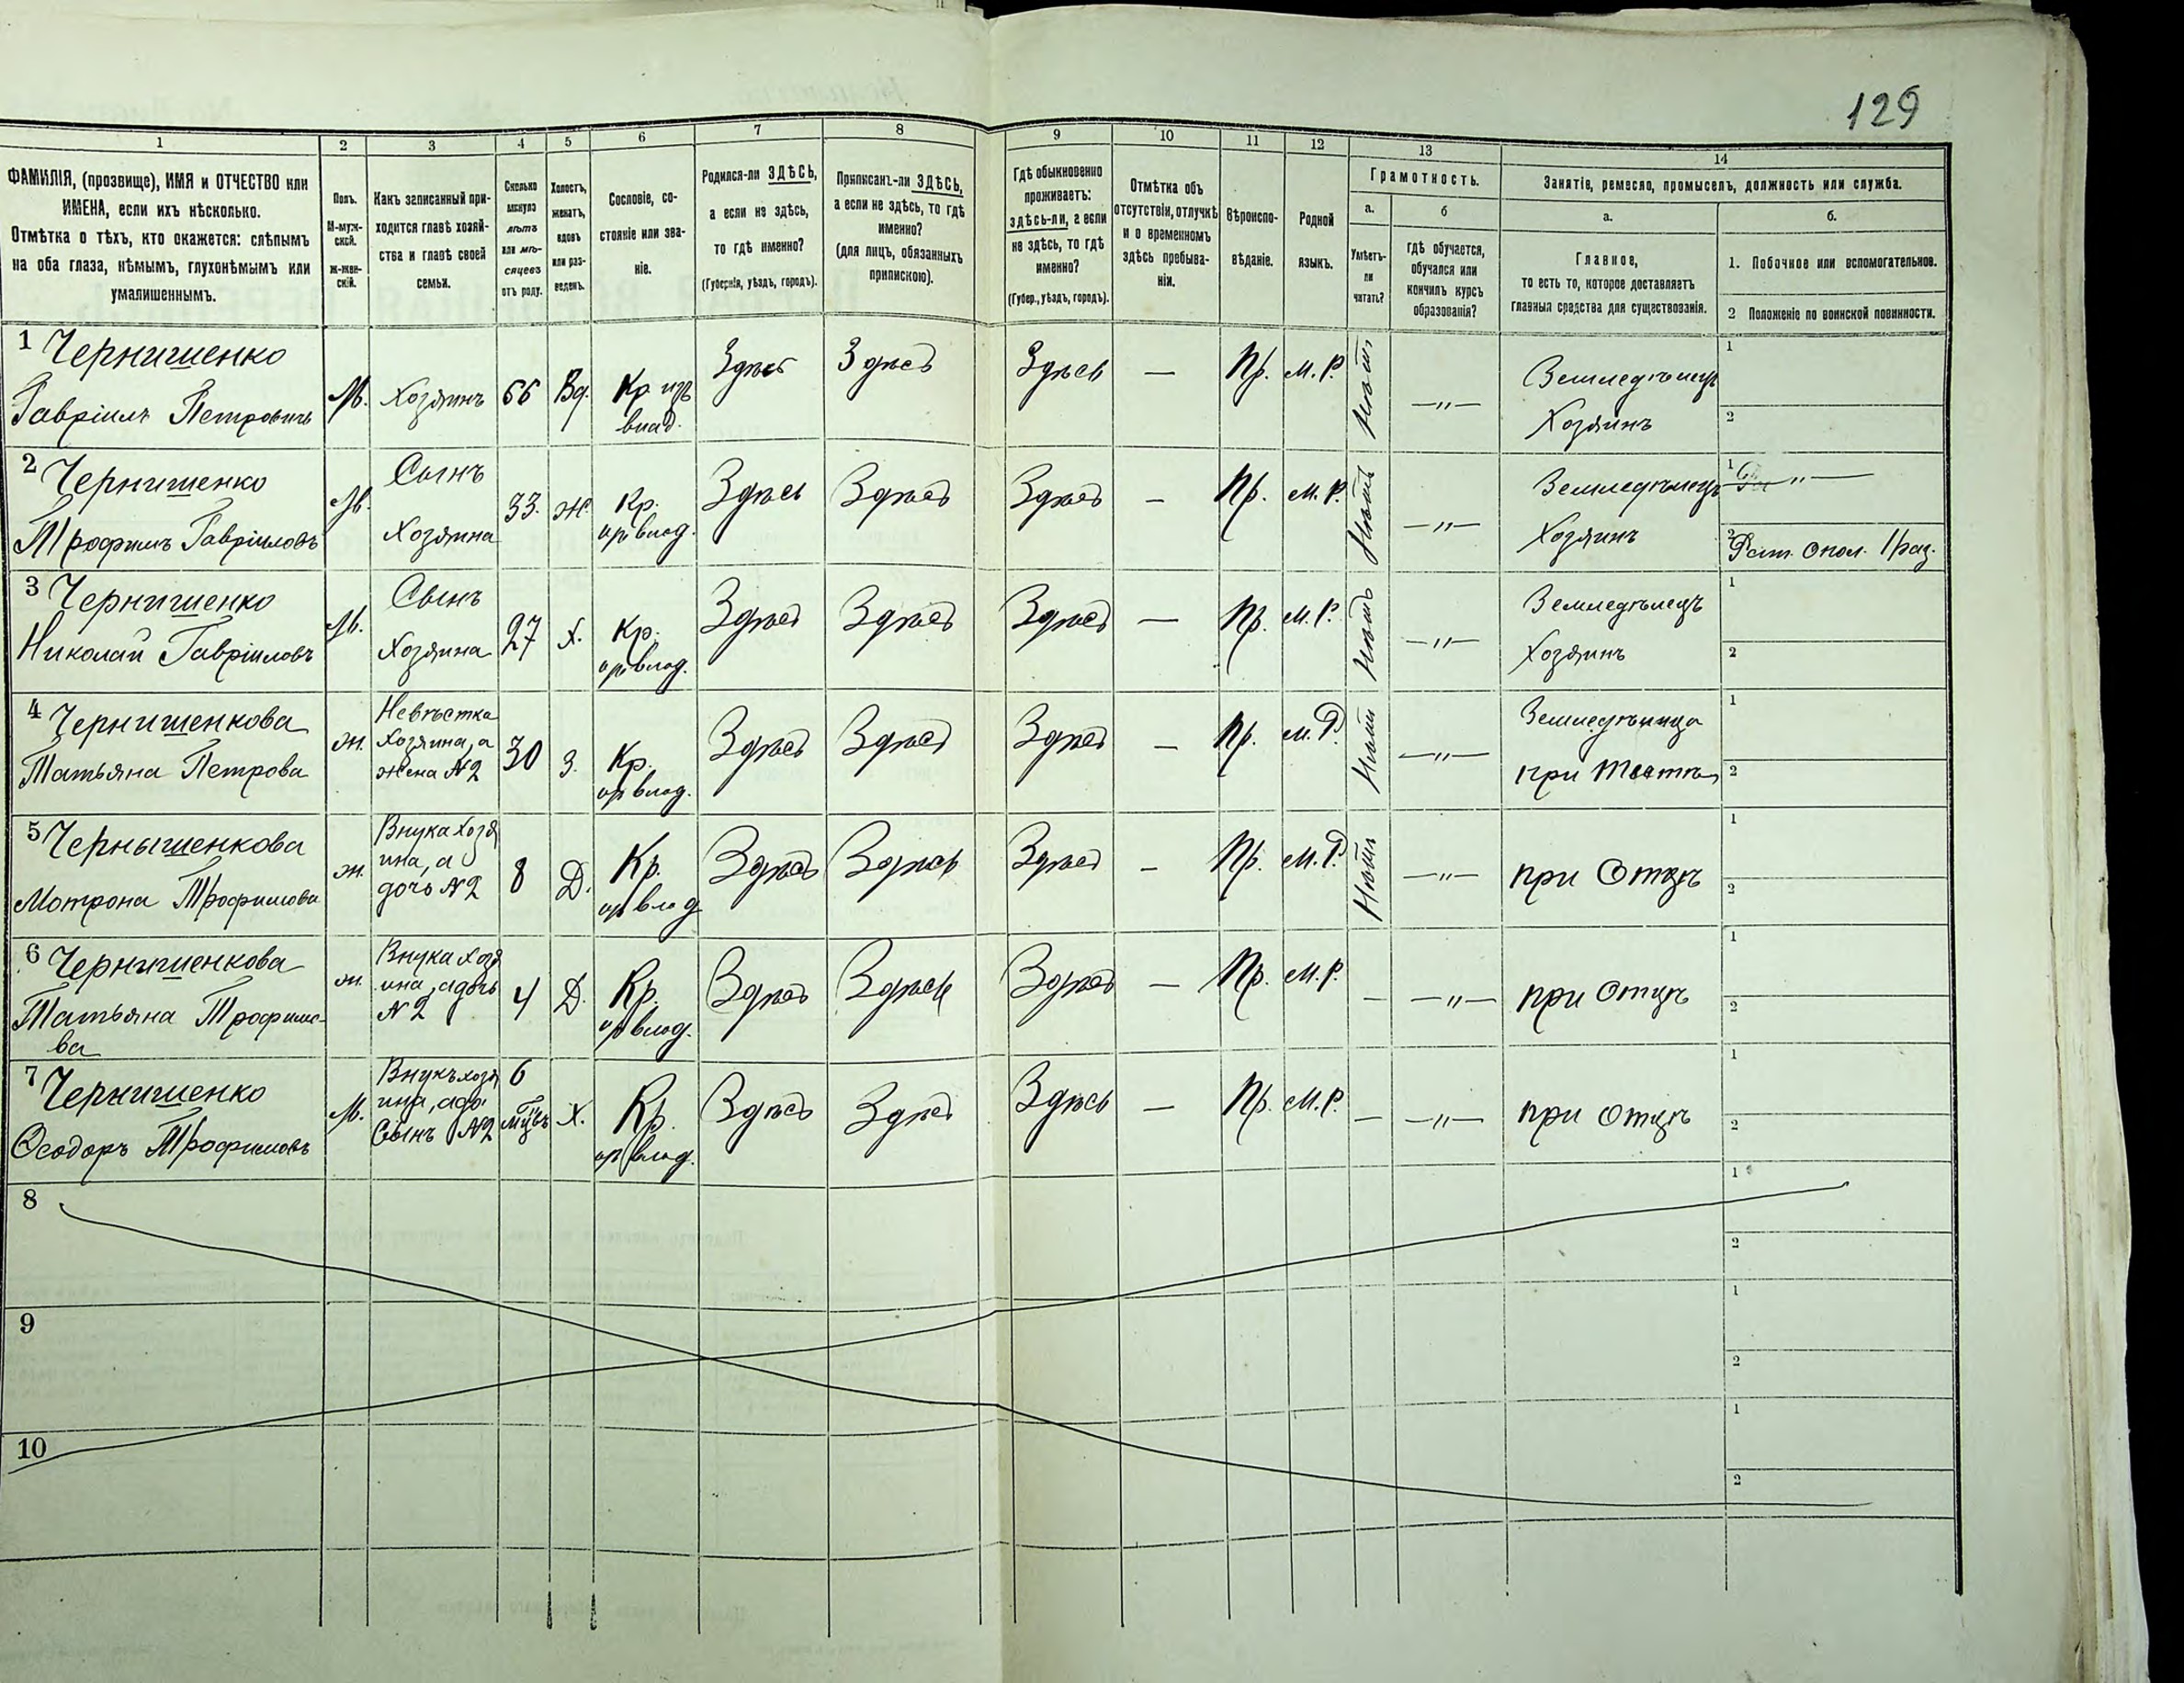 129
1
2
3
4
5
6
7
8
9
10
11
12
13
14
ФАМИЛІЯ, (прозвище), ИМЯ и ОТЧЕСТВО или
ИМЕНА, если ихъ нѣсколько.
Отмѣтка о тѣхъ, кто окажется: слѣпымъ
на оба глаза, нѣмымъ, глухонѣмымъ или
умалишеннымъ.
Полъ.
М-муж-
ской.
Ж-жен-
скій.
Какъ записанный при-
ходится главѣ хозяй-
ства и главѣ своей
семьи.
Сколько
минуло
лѣтъ
или мѣ-
сяцевъ
отъ роду.
Холостъ,
женатъ,
вдовъ
или раз-
веденъ.
Сословіе, со-
стояніе или зва-
ніе.
Родился-ли ЗДѢСЬ,
а если не здѣсь,
то гдѣ именно?
(Губернія, уѣздъ, городъ).
Приписанъ-ли ЗДѢСЬ,
а если не здѣсь, то гдѣ
именно?
(для лицъ, обязанныхъ
припискою).
Гдѣ обыкновенно
проживаетъ:
здѣсь-ли, а если
не здѣсь, то гдѣ
именно?
(Губер., уѣздъ, городъ).
Отмѣтка объ
отсутствіи, отлучкѣ
и о временномъ
здѣсь пребыва-
ніи.
Вѣроиспо-
вѣданіе.
Родной
языкъ.
Грамотность.
а.
Умѣетъ-
ли
читать?
б
гдѣ обучается,
обучался или
кончилъ курсъ
образованія?
Занятіе, ремесло, промыселъ, должность или служба.
а.
Главное,
то есть то, которое доставляетъ
главныя средства для существованія.
б.
1. Побочное или вспомогательное.
2 Положеніе по воинской повинности.
1 Чернишенко
Гавріилъ Петровичъ
М.
Хозяинъ
66
Вд.
Кр. изъ
влад.
Здѣсь
Здѣсь
Здѣсь
—
Пр.
М. Р.
Нѣтъ
—"—
Земледѣлецъ
Хозяинъ
1
2
2 Чернишенко
Трофимъ Гавріиловъ
М.
Сынъ
Хозяина
33.
Ж.
Кр.
из влад.
Здѣсь
Здѣсь
Здѣсь
—
Пр.
М. Р.
Нѣтъ
—"—
Земледѣлецъ
Хозяинъ
1 "—
2 Рат. опол. 1 раз.
3 Чернишенко
Николай Гавріиловъ
М.
Сынъ
Хозяина
27
Х.
Кр.
из влад.
Здѣсь
Здѣсь
Здѣсь
—
Пр.
М. Р.
Нѣтъ
—"—
Земледѣлецъ
Хозяинъ
1
2
4 Чернишенкова
Татьяна Петрова
Ж.
Невѣстка
Хозяина, а
жена №2
30
З.
Кр.
из влад.
Здѣсь
Здѣсь
Здѣсь
—
Пр.
М. Р.
Нѣтъ
—"—
Земледѣлица
1
2
5 Чернышенкова
Мотрона Трофимова
Ж.
Внука Хозя
ина, а
дочь №2
8
Д.
Кр.
из влад
Здѣсь
Здѣсь
Здѣсь
—
Пр.
М. Р.
Нѣтъ
—"—
при Отцѣ
1
2
6 Чернышенкова
Татьяна Трофимо-
ва
Ж.
Внука Хозя
ина, а дочь
№2
4
Д.
Кр.
из влад.
Здѣсь
Здѣсь
Здѣсь
—
Пр.
М. Р.
—
—"—
при Отцѣ
1
2
7 Чернишенко
Ѳеодоръ Трофимовъ
М.
Внукъ хозя
ина, а
Сынъ №2
6
мц̃въ
Х.
Кр.
из влад.
Здѣсь
Здѣсь
Здѣсь
—
Пр.
М. Р.
—
—"—
при Отцѣ
1
2
8
1
2
9
1
2
10
1
2